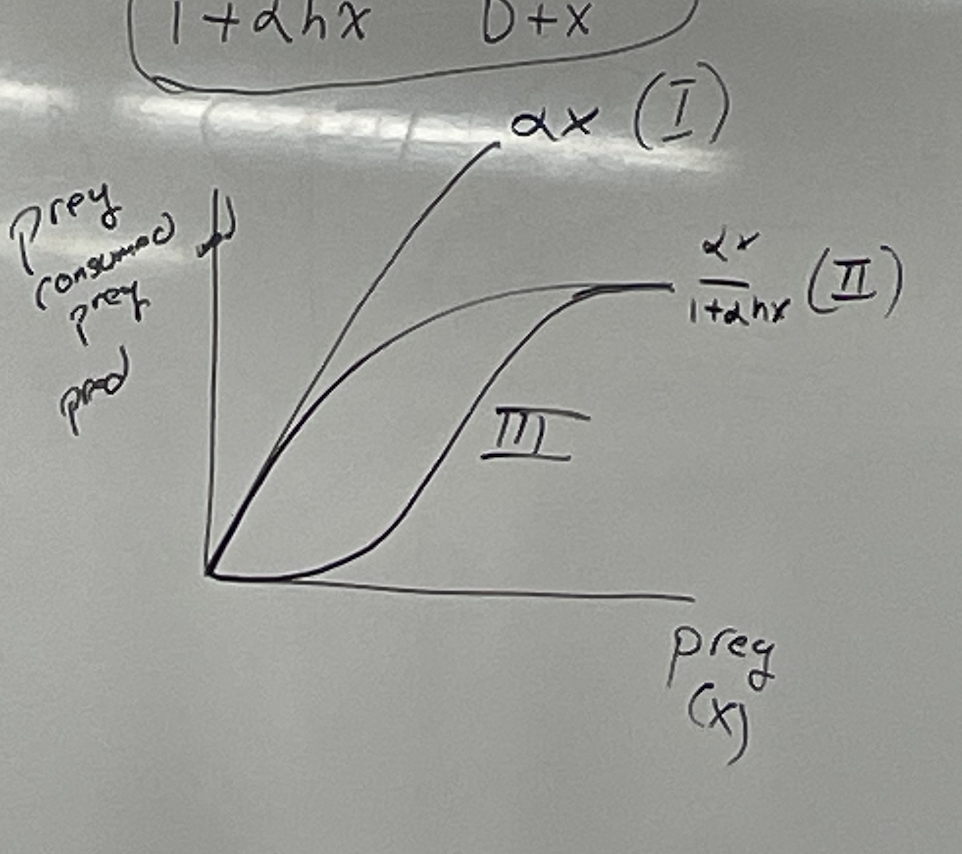 1+αhx D+x
αx (I)
prey
consumed
prey
pred
αx
1+αhx
(II)
III
prey
(x)